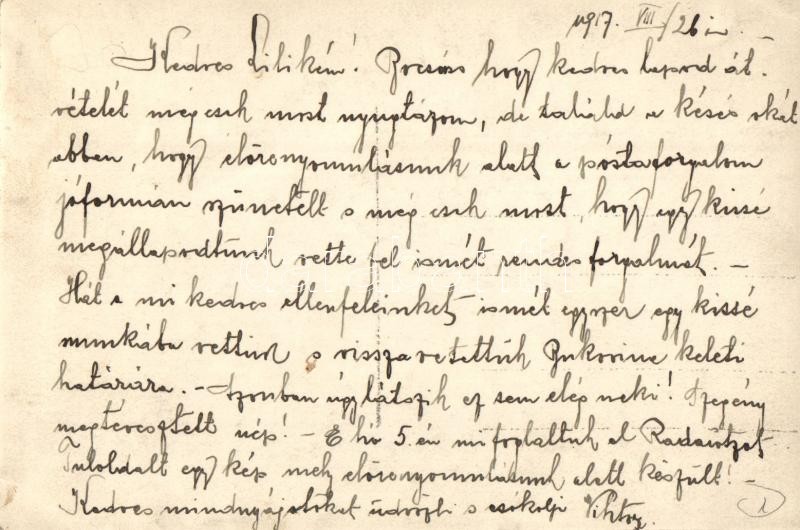 1917. VIII/26 án. -
Kedves Lilikém! Bocsáss hogy kedves lapod át-
vételét még csak most nyugtázom, de találd a késés okát
abban, hogy előnyomulásunk alatt a póstaforgalom
jóformán szünetelt s még csak most, hogy egy kissé
megállapodtunk vette fel ismét rendes forgalmát. -
Hát a mi kedves ellenfeleinket ismét egyszer egy kissé
munkába vettük s visszavetettük Bukovina keleti
határára. - Azonban úgy látszik ez sem elég neki! Szegény
megtévesztett nép! - E hó 5.-én mi foglaltuk el Radautzot
Túloldalt egy kép mely előnyomulásunk alatt készült! -
Kedves mindnyájatokat üdvözli s csókolja Viktor